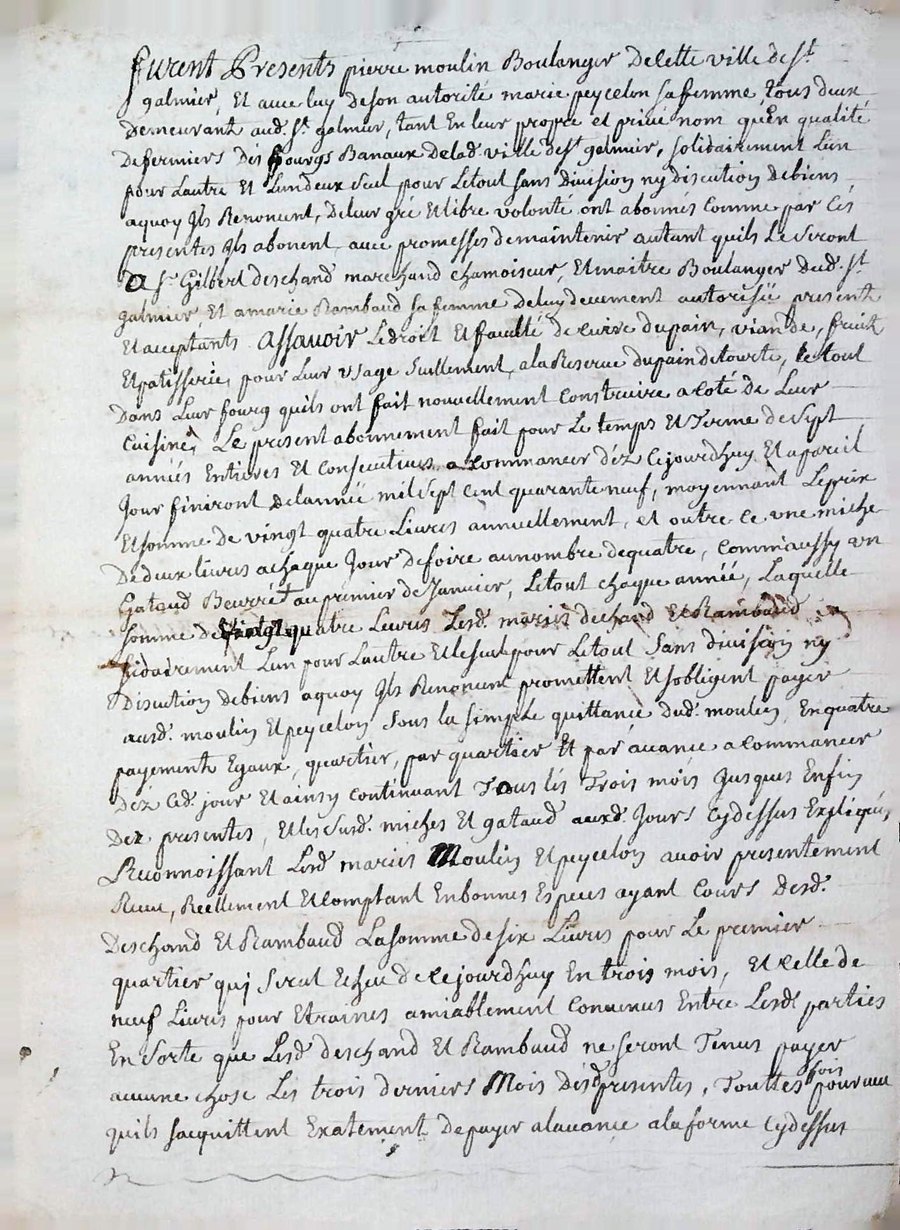 furent Presents pierre moulin Boulanger de cette ville de st
galmier, Et avec luy de son autorité marie peycelon sa femme, tous deux
demeurant aud. st galmier, tant En leur propre et privé nom quEn qualité
de fermiers des fourgs Banaux de lad. ville de st galmier, solidairement Lun
pour Lautre Et Lun deux seul pour Letout sans division ny discution de biens
aquoy Ils Renoncent, de leur gré Et libre volonté ont abonnés Comme par Ces
presentes Ils abonent, avec promesses de maintenir autant quils Le seront
a sr Gilbert deschand marchand chamoiseur, Et maitre Boulanger dud. st
galmier, Et a marie Rambaud sa femme de luy deuement autorisée presents
Et acceptants. Assavoir Le droit Et faculté de cuire du pain, viande, fruits
Et patisserie, pour Leur Usage seullement, a la Reserve du pain de tourte, Le tout
dans Leur fourg quils ont fait nouvellement Construire a coté de Leur
Cuisine, Le present abonnement fait pour Le temps Et Terme de Sept
années Entieres Et Consecutives a Commancer déz Cejourdhuy Et a pareil
Jour finiront de lannée mil Sept Cent quarante neuf, moyennant Le prix
Et somme de vingt quatre Livres annuellement, et outre Ce une miche
de deux livres a chaque Jour de foire au nombre de quatre, Comm'aussy un
Gataud Beurrét au premier de Janvier, Le tout chaque année, Laquelle
somme de vingt quatre Livres Lesd. mariés dechand Et Rambaud
lidairement Lun pour Lautre Et le seul pour Le tout sans division ny
Discution de biens aquoy Ils Renoncent promettent Et sobligent payer
ausd. moulin Et peycelon sous la simple quittance dud. moulin, En quatre
payements Egaux, quartier, par quartier Et par avance a Commancer
déz Ced. jour Et ainsy Continuant Tous lés Trois mois Jusques Enfin
Dez presentes, Et les susd. miches Et gataud auxd. Jours Cydessus Expliqués,
Reconnoissant Lesd. mariés Moulin Et peycelon avoir presentement
Receu, Reellement Et Comptant En bonnes Especes ayant Cours desd.
Deschand Et Rambaud La somme de six Livres pour Le premier
quartier qui serat Echeu de Cejourdhuy En trois mois, Et Celle de
neuf Livres pour Etraines amiablement Convenus Entre Lesd. parties
En Sorte que Lesd. deschand Et Rambaud ne seront Tenus payer
aucune chose Les trois derniers Mois desd. presentes, Touttes fois pourveu
quils sacquittent Exatement de payer a lavance a la forme Cydessus